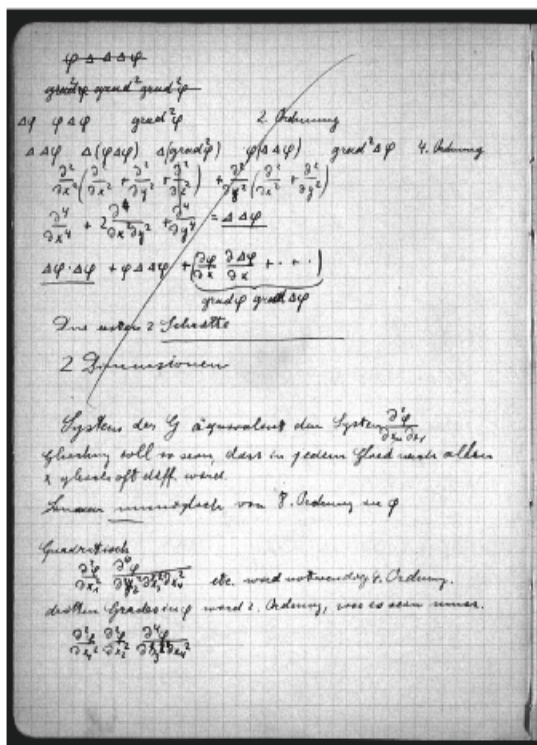 φ Δ Δ Δ φ
grad²φ grad² grad²φ
Δφ φΔφ grad²φ 2. Ordnung
ΔΔφ Δ(φΔφ) Δ(grad²φ) φ(ΔΔφ) grad²Δφ 4. Ordnung
∂²/∂x² (∂²/∂x² + ∂²/∂y² + ∂²/∂z²) + ∂²/∂y² (∂²/∂x² + ∂²/∂y²)
∂⁴/∂x⁴ + 2 ∂⁴/∂x²∂y² + ∂⁴/∂y⁴ = ΔΔφ
Δφ·Δφ + φΔΔφ + (∂φ/∂x ∂Δφ/∂x + · + ·)
gradφ gradΔφ
Die ersten 2
2 Dimensionen
System der G äquivalent dem System ∂²φ/
Gleichung soll so sein, dass in jedem Glied nach allen
x gleich oft diff. wird.
Linear unmöglich von 8. Ordnung in φ
Quadratisch
∂²φ/∂x₁² ∂⁶φ/∂x₂²∂x₃²∂x₄² etc. wird notwendig 6. Ordnung.
dritten Grades in φ wird 4. Ordnung, was es sein muss.
∂²φ/∂x₁² ∂²φ/∂x₂² ∂⁴φ/∂x₃²∂x₄²